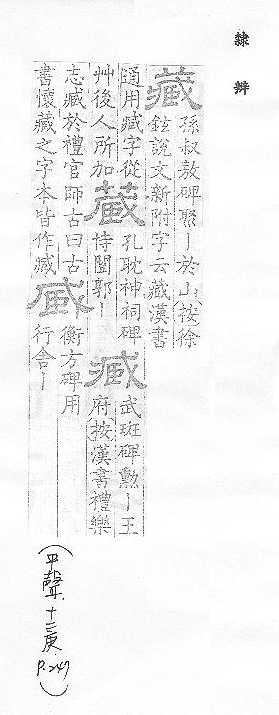 隸辨
藏
孫叔敖碑聚丨於山(按徐
鉉說文新附字云藏漢書
通用臧字從
艸後人所加
蔵
孔耽神祠碑
恃闔郭丨
臧
武班碑勲丨王
府(按漢書禮樂
志臧於禮官師古曰古
書懷藏之字本皆作臧
臧
衡方碑用
行舍丨
(平聲
P.247)